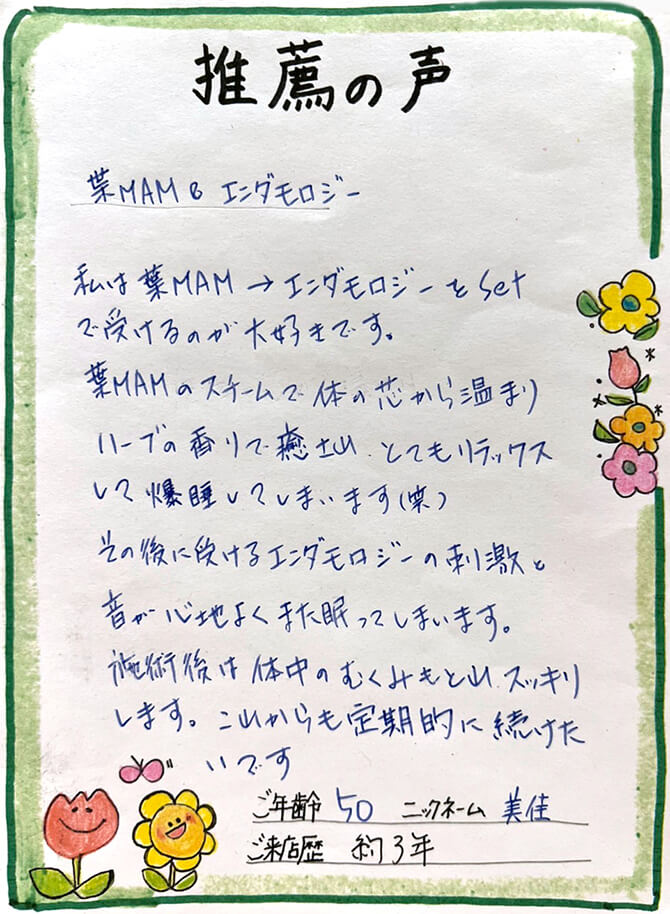 推薦の声
葉MAM & エンダモロジー
私は葉MAM→エンダモロジーをset
で受けるのが大好きです。
葉MAMのスチームで体の芯から温まり
ハーブの香りで癒され、とてもリラックス
して爆睡してしまいます(笑)
その後に受けるエンダモロジーの刺激と
音が心地よくまた眠ってしまいます。
施術後は体中のむくみもとれ、スッキリ
します。これからも定期的に続けた
いです
ご年齢 50 ニックネーム 美佳
ご来店歴 約3年